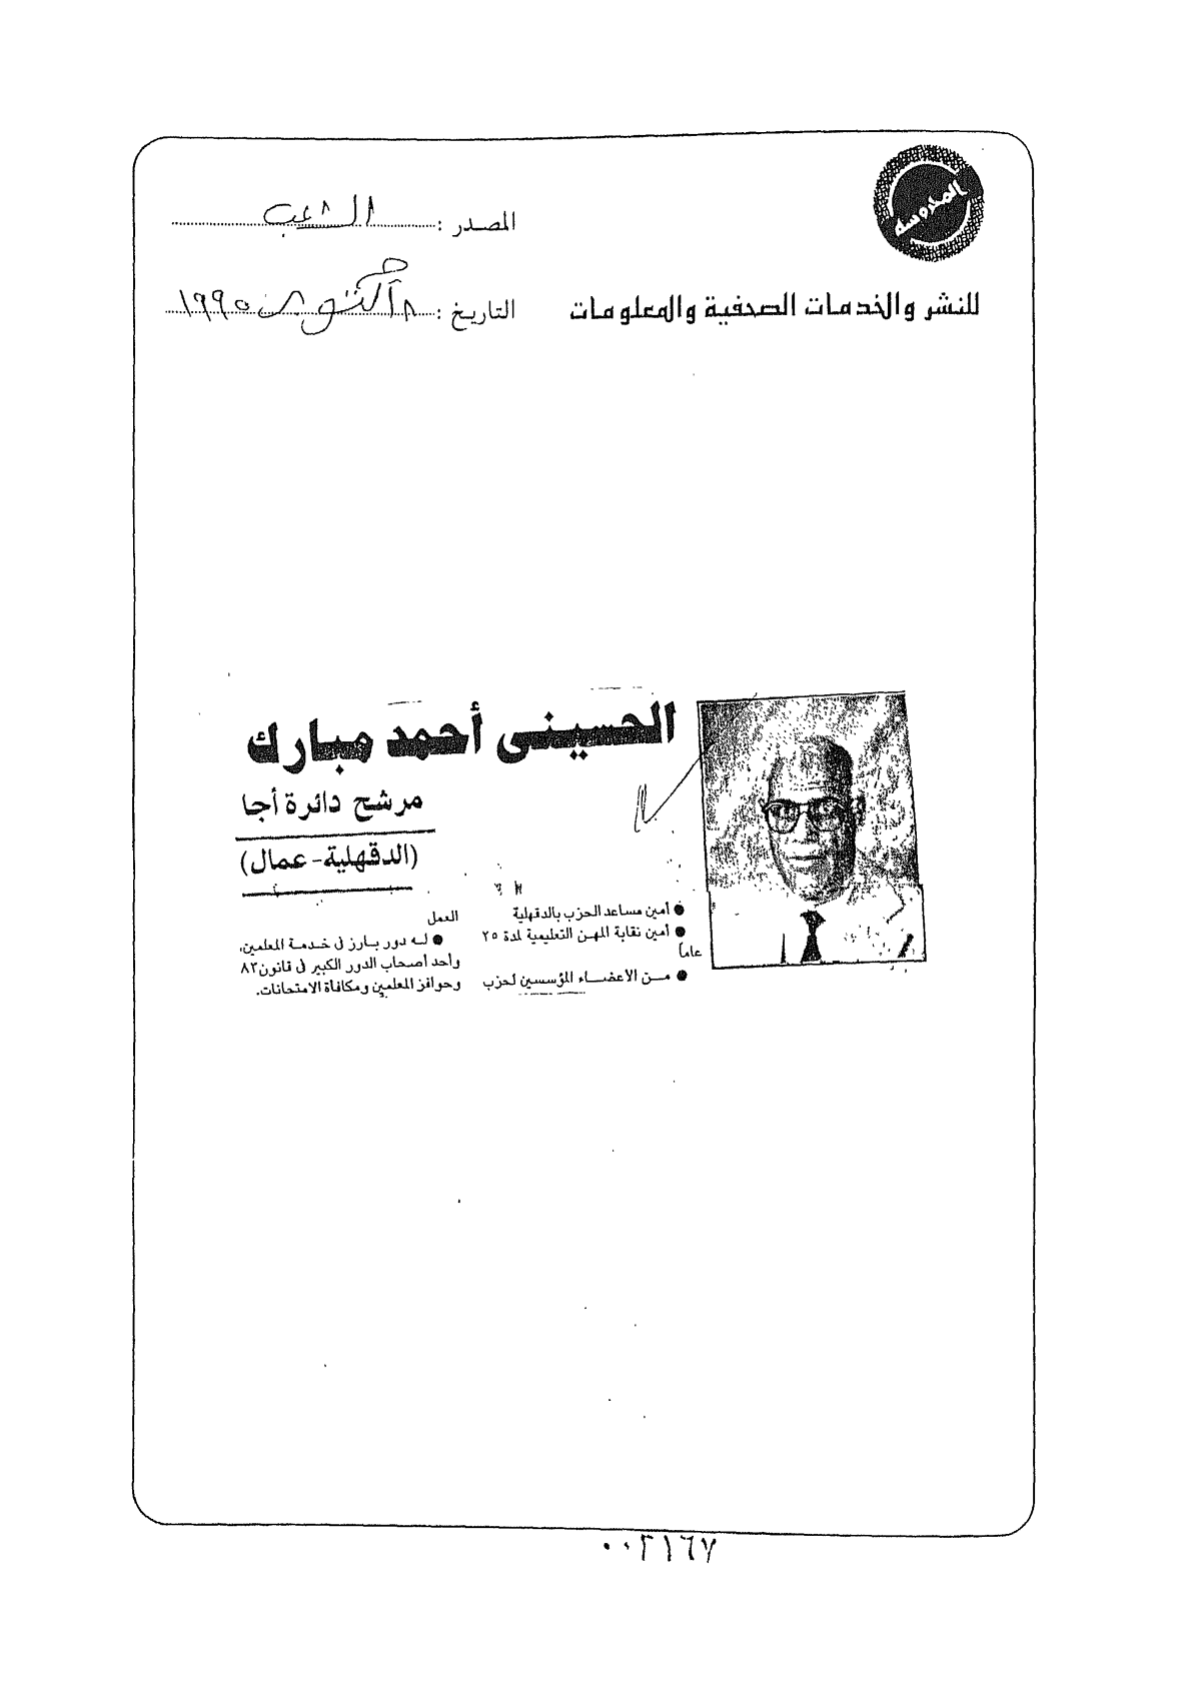 المحروسة
للنشر والخدمات الصحفية والمعلومات
المصدر : الشعب
التاريخ : ٨ أكتوبر ١٩٩٥
الحسينى أحمد مبارك
مرشح دائرة أجا
(الدقهلية - عمال)
● أمين مساعد الحزب بالدقهلية
● أمين نقابة المهن التعليمية لمدة ٢٥
عاماً
● من الاعضاء المؤسسين لحزب
العمل
● له دور بارز فى خدمة المعلمين،
وأحد أصحاب الدور الكبير فى قانون ٨٣
وحوافز المعلمين ومكافاة الامتحانات.
٠٠٢١٦٧